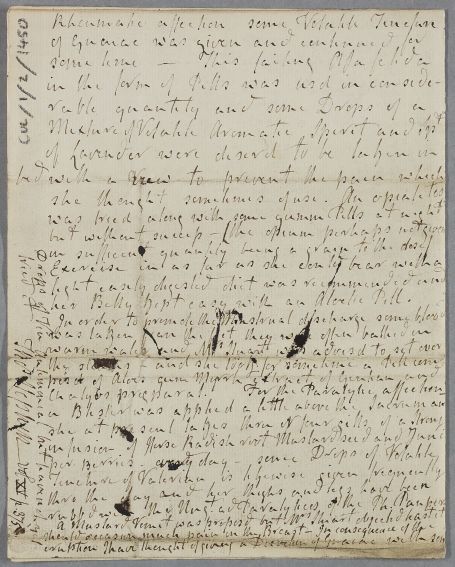 Rheumatic affection some Volatile Tincture
of Guaiac was given and continued for
some time — This failing Assa foetida
in the form of Pills was used in conside-
rable quantity and some Drops of a
Mixture of Volatile Aromatic Spirit and Spt
of Lavender were desired to be taken in
bed with a view to prevent the pain which
she thought sometimes of use. An opiate too
was tried along with some gummi Pills at night
but without success — (the opium perhaps not given
in sufficient quantity being a grain to the dose)
Exercise in as far as she could bear with a
light easily digested diet was recommended and
her Belly kept easy with an Aloetic Pill.
In order to promote the Menstrual discharge some blood
was taken feet they were often bathed in
warm water and Mrs Stuart was advised to set over
the steams and she took for sometime a
of Aloes gum Myrrh Extract of Gentian and
Chalybs preparat. For the Paralytic affection
a Blister was applied a little above the Sacrum and
she at present takes three or four gills of a strong
infusion of Horse Radish root Mustard seed and Juni
per berries day — some Drops of Volatile
Tincture of Valerian is likewise given frequently
thro the day and her thighs and legs have been
rubbed with the Ung. ad Paralyticos of the Ph. Pauper
A Mustard Vomit was proposed but Mrs Stuart objected that it
should occasion much pain in the Breast. In consequence of the
eruption I have thought of giving a Decoction of Guaiac with some
Cul/1/2/1450